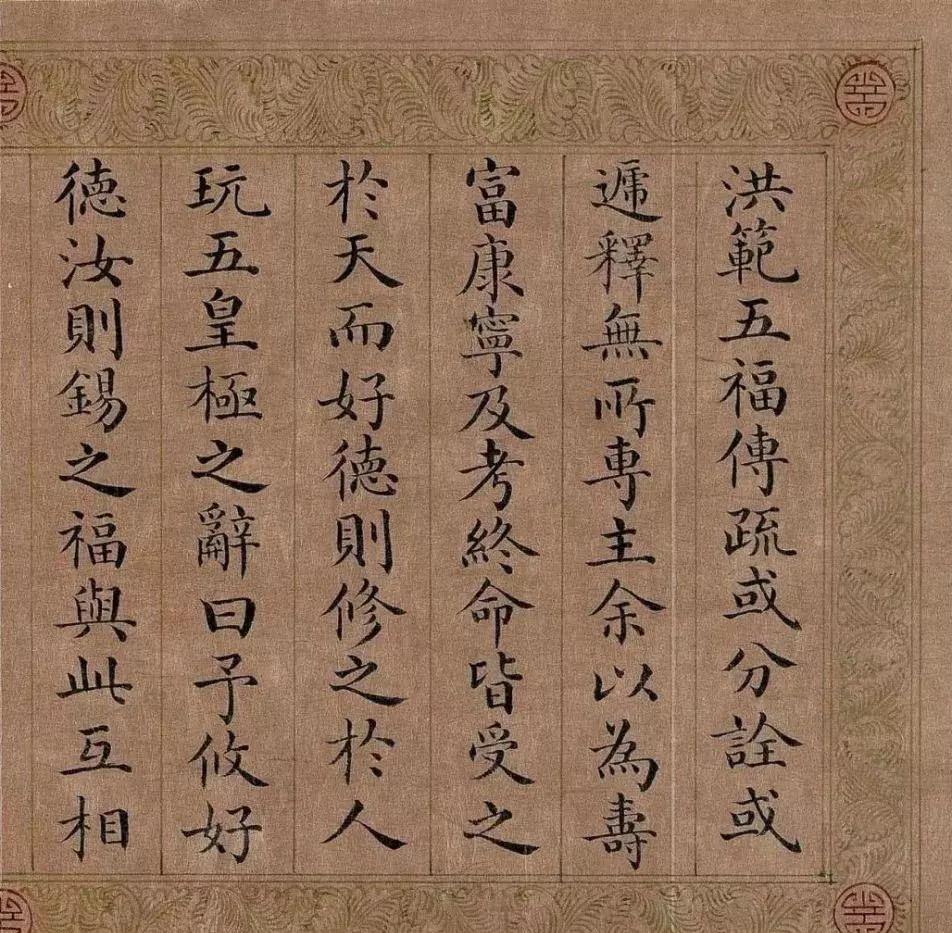 洪範五福傳疏或分詮或
遞釋無所專主余以為壽
富康寧及考終命皆受之
於天而好德則修之於人
玩五皇極之辭曰予攸好
德汝則錫之福與此互相